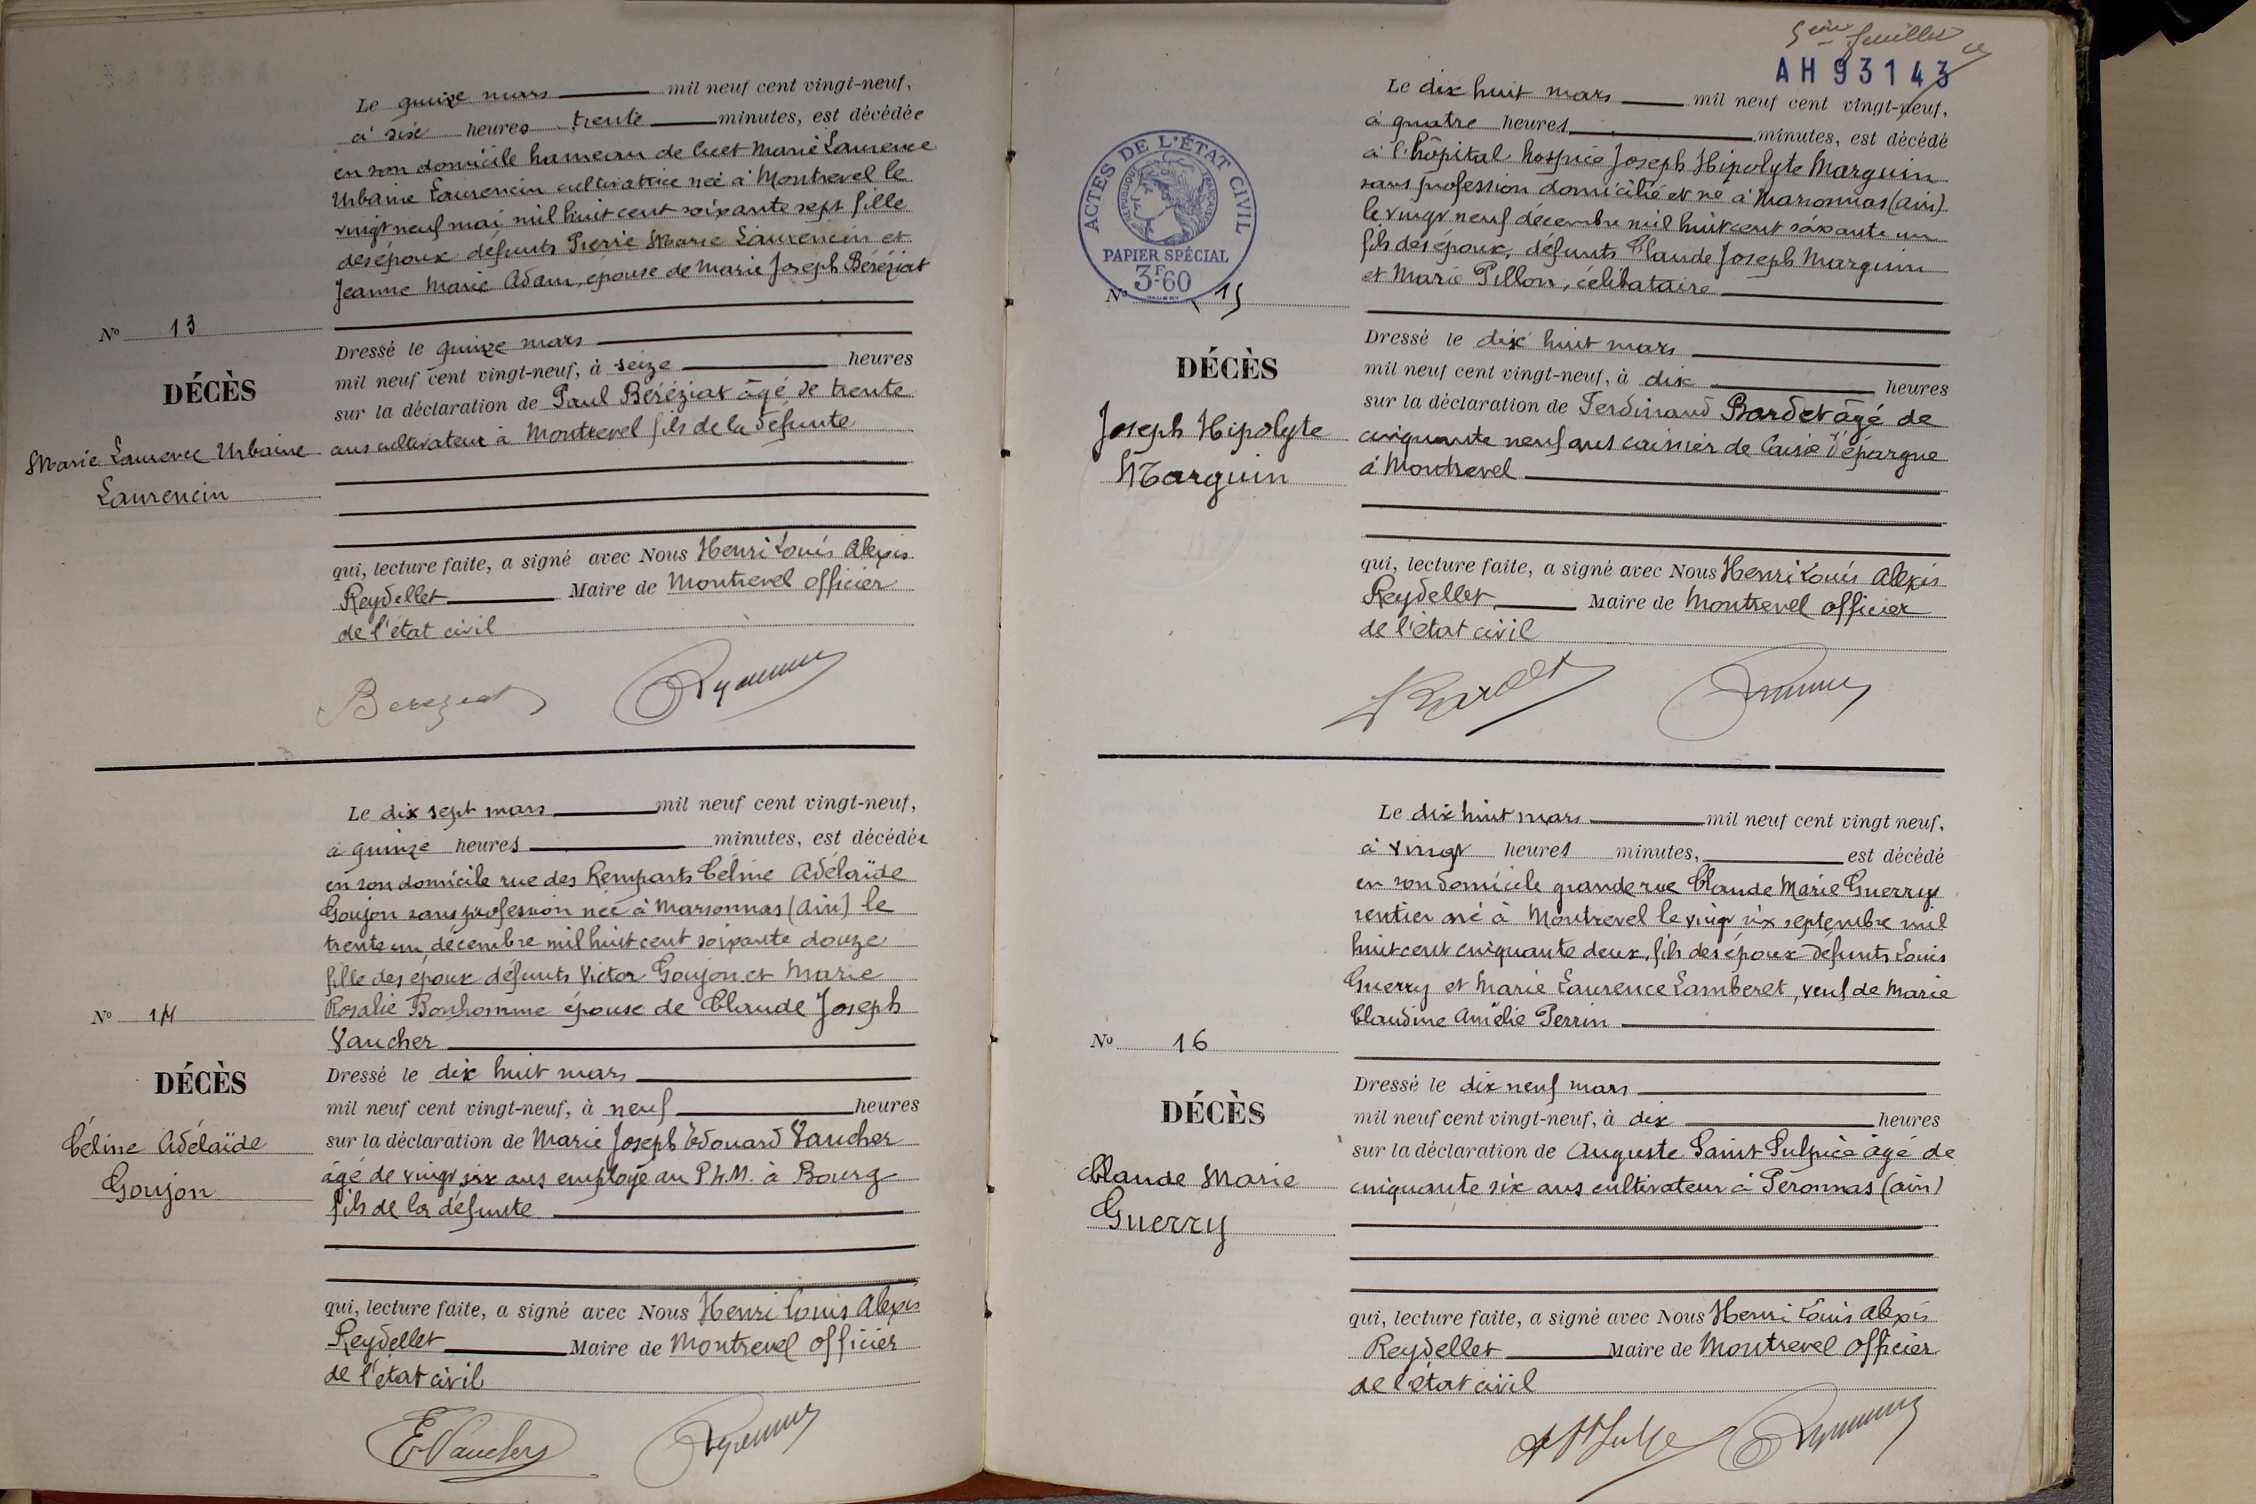 Le quinze mars mil neuf cent vingt-neuf,
à six heures trente minutes, est décédée
en son domicile hameau de Cuet Marie Laurence
Urbaine Laurencin cultivatrice née à Montrevel le
vingt neuf mai mil huit cent soixante sept fille
des époux défunts Pierre Marie Laurencin et
Jeanne Marie Adam, épouse de Marie Joseph Béréziat
No 13
DÉCÈS
Marie Laurence Urbaine
Laurencin
Dressé le quinze mars
mil neuf cent vingt-neuf, à seize heures
sur la déclaration de Paul Béréziat âgé de trente
ans cultivateur à Montrevel fils de la défunte
qui, lecture faite, a signé avec Nous Henri Louis Alexis
Reydellet Maire de Montrevel officier
de l'état civil
Bereziat
Le dix sept mars mil neuf cent vingt-neuf,
à quinze heures minutes, est décédée
en son domicile rue des Remparts Céline Adélaïde
Goujon sans profession née à Marsonnas (Ain) le
trente un décembre mil huit cent soixante douze
fille des époux défunts Victor Goujon et Marie
Rosalie Bonhomme épouse de Claude Joseph
Vaucher
No 14
DÉCÈS
Céline Adélaïde
Goujon
Dressé le dix huit mars
mil neuf cent vingt-neuf, à neuf heures
sur la déclaration de Marie Joseph Edouard Vaucher
âgé de vingt six ans employé au P.L.M. à Bourg
fils de la défunte
qui, lecture faite, a signé avec Nous Henri Louis Alexis
Reydellet Maire de Montrevel officier
de l'état civil
E Vaucher
5ème feuillet
AH 93143
ACTES DE L'ÉTAT CIVIL
RÉPUBLIQUE FRANÇAISE
PAPIER SPÉCIAL
3F.60
Le dix huit mars mil neuf cent vingt-neuf,
à quatre heures minutes, est décédé
à l'hôpital hospice Joseph Hipolyte Marguin
sans profession domicilié et né à Marsonnas (Ain)
le vingt neuf décembre mil huit cent soixante un
fils des époux, défunts Claude Joseph Marguin
et Marie Pillon, célibataire
No 15
DÉCÈS
Joseph Hipolyte
Marguin
Dressé le dix huit mars
mil neuf cent vingt-neuf, à dix heures
sur la déclaration de Ferdinand Bardet âgé de
cinquante neuf ans caissier de Caisse d'épargne
à Montrevel
qui, lecture faite, a signé avec Nous Henri Louis Alexis
Reydellet Maire de Montrevel officier
de l'état civil
Bardet
Le dix huit mars mil neuf cent vingt neuf,
à vingt heures minutes, est décédé
en son domicile grande rue Claude Marie Guerry
rentier né à Montrevel le vingt six septembre mil
huit cent cinquante deux, fils des époux défunts Louis
Guerry et Marie Laurence Lamberet, veuf de Marie
Claudine Amélie Perrin
No 16
DÉCÈS
Claude Marie
Guerry
Dressé le dix neuf mars
mil neuf cent vingt-neuf, à dix heures
sur la déclaration de Auguste Saint Sulpice âgé de
cinquante six ans cultivateur à Péronnas (Ain)
qui, lecture faite, a signé avec Nous Henri Louis Alexis
Reydellet Maire de Montrevel officier
de l'état civil